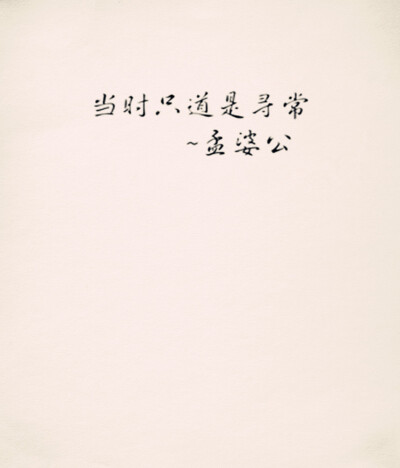 当时只道是寻常
~孟婆公